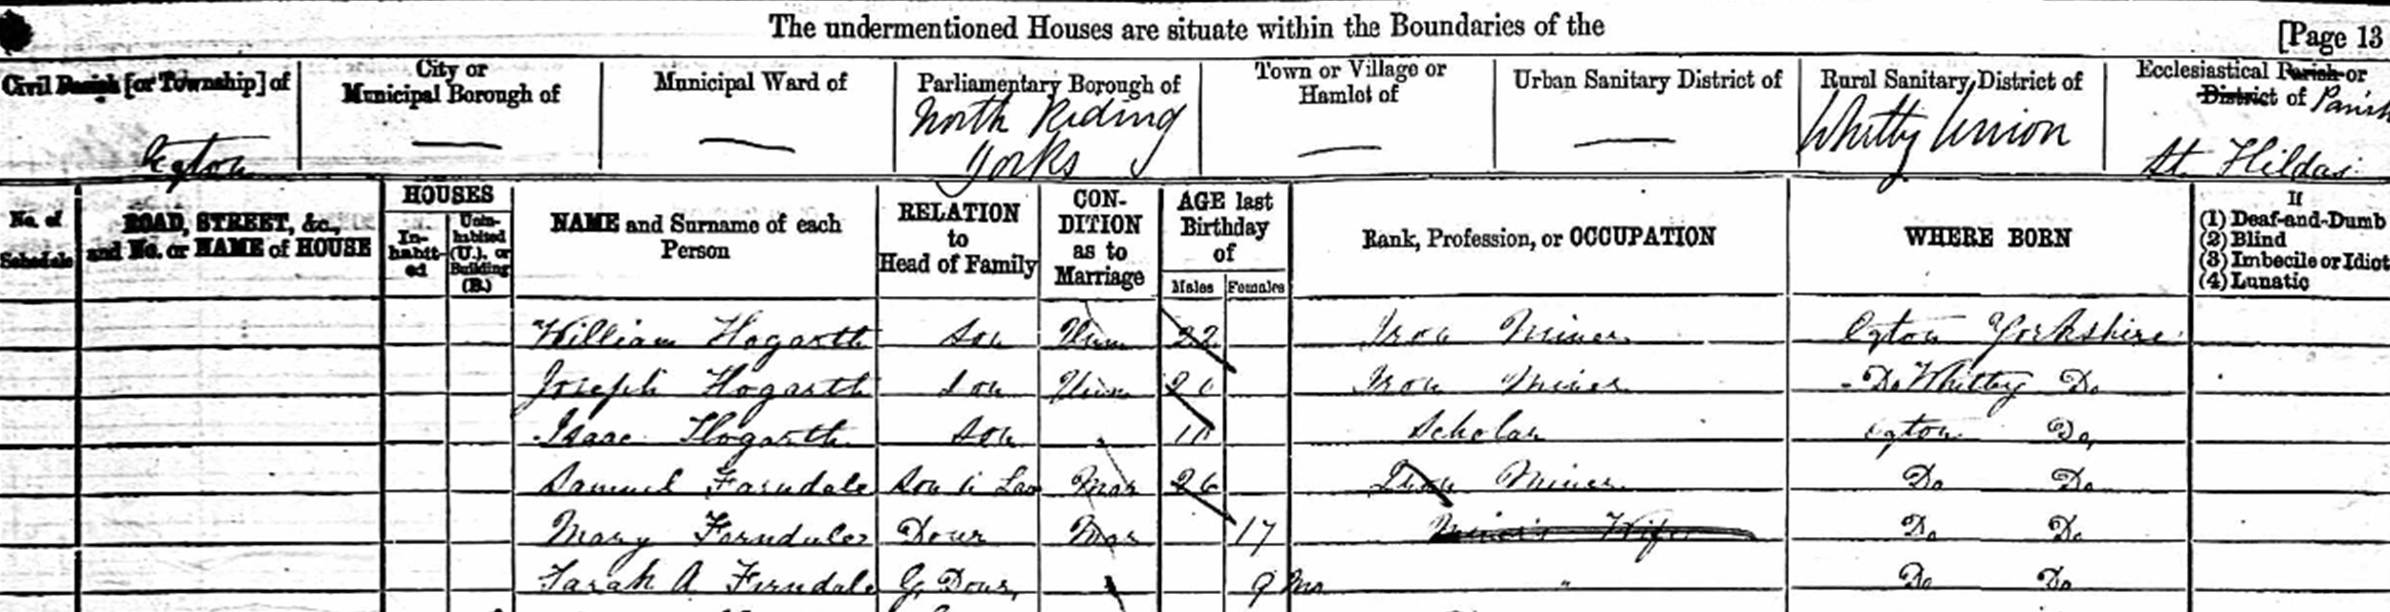 The undermentioned Houses are situate within the Boundaries of the [Page 13
Civil Parish [or Township] of
Egton
City or Municipal Borough of
—
Municipal Ward of
—
Parliamentary Borough of
North Riding
Yorks
Town or Village or Hamlet of
—
Urban Sanitary District of
—
Rural Sanitary District of
Whitby Union
Ecclesiastical Parish or
District of Parish
St. Hildas
No. of Schedule
ROAD, STREET, &c., and No. or NAME of HOUSE
HOUSES
In-habit-ed
Unin-habited (U.), or Building (B.)
NAME and Surname of each Person
RELATION to Head of Family
CON-DITION as to Marriage
AGE last Birthday of
Males Females
Rank, Profession, or OCCUPATION
WHERE BORN
If
(1) Deaf-and-Dumb
(2) Blind
(3) Imbecile or Idiot
(4) Lunatic
William Hogarth Son Unm 22 Iron Miner Egton Yorkshire
Joseph Hogarth Son Unm Iron Miner Do Whitby Do
Isaac Hogarth Son 10 Scholar Egton Do
Samuel Farndale Son in Law Mar 26 Iron Miner Do Do
Mary Farndale Daur Mar 17 Miner's Wife Do Do
Sarah A Farndale G. Daur. 9 Mo Do Do